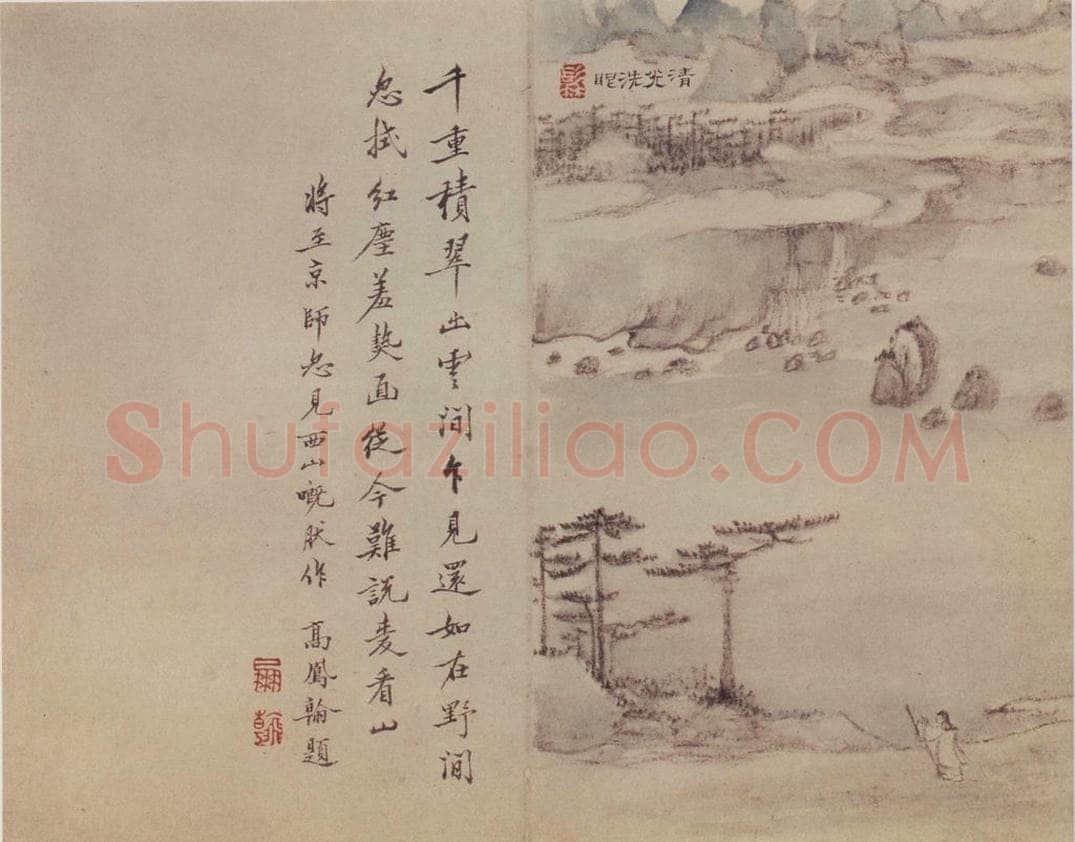 清光洗眼
千重積翠出雲間乍見還如在野間
忽拭紅塵羞熱面從今難說愛看山
將至京師忽見西山嘅然作 高鳳翰題
Shufaziliao.COM